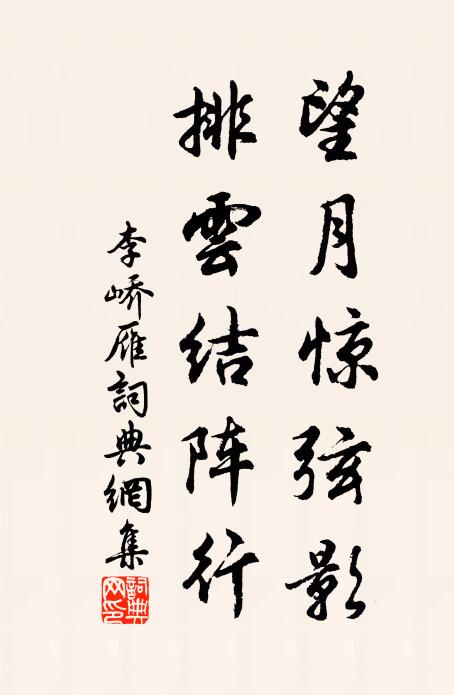 望月惊弦影
排雲结阵行
李峤雁詞典網集
詞典網印